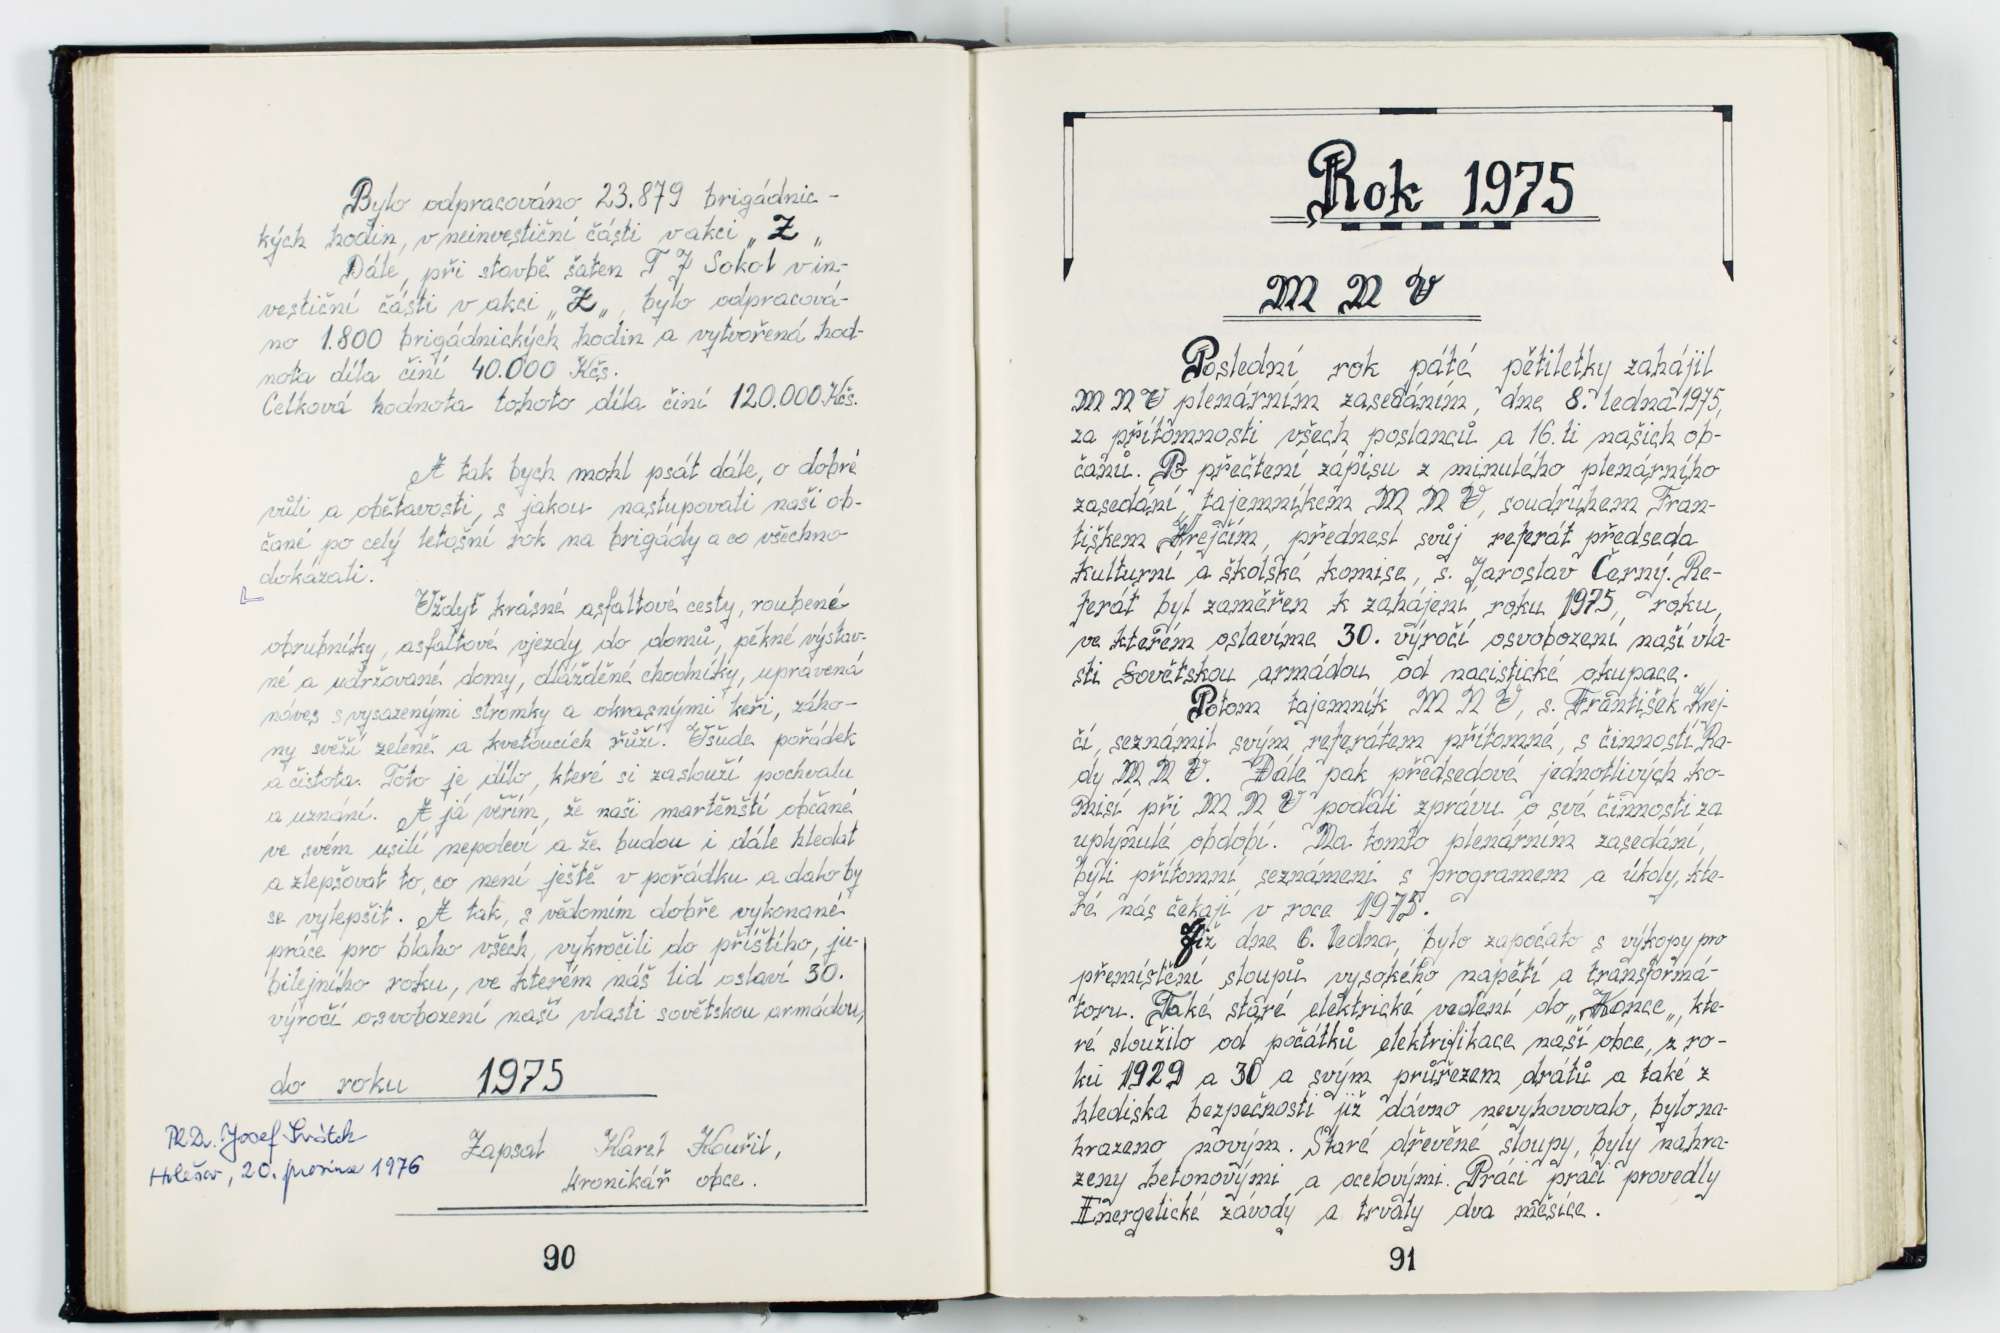 Bylo odpracováno 23.879 brigádnic-
kých hodin, v neinvestiční části v akci „Z„
Dále, při stavbě šaten TJ Sokol v in-
vestiční části v akci „Z„, bylo odpracová-
no 1.800 brigádnických hodin a vytvořená hod-
nota díla činí 40.000 Kčs.
Celková hodnota tohoto díla činí 120.000 Kčs.
A tak bych mohl psát dále, o dobré
vůli a obětavosti, s jakou nastupovali naši ob-
čané po celý letošní rok na brigády a co všechno
dokázali.
Vždyť krásné asfaltové cesty, roubené
obrubníky, asfaltové vjezdy do domů, pěkné výstav-
né a udržované domy, dlážděné chodníky, upravená
náves s vysazenými stromky a okrasnými keři, záho-
ny svěží zeleně a kvetoucích růží. Všude pořádek
a čistota. Toto je dílo, které si zaslouží pochvalu
a uznání. A já věřím, že naši martěnští občané
ve svém usilí nepoleví a že budou i dále hledat
a zlepšovat to, co není ještě v pořádku a dalo by
se vylepšit. A tak, s vědomím dobře vykonané
práce pro blaho všech, vykročili do příštího, ju-
bilejního roku, ve kterém náš lid oslaví 30.
výročí osvobození naší vlasti sovětskou armádou,
do roku 1975
Zapsal Karel Kouřil,
kronikář obce.
Josef Svátek
Holešov, 20. prosince 1976
90
Rok 1975
M N V
Poslední rok páté pětiletky zahájil
M N V plenárním zasedáním, dne 8. ledna 1975,
za přítomnosti všech poslanců a 16.ti našich ob-
čanů. Po přečtení zápisu z minulého plenárního
zasedání, tajemníkem M N V, soudruhem Fran-
tiškem Krejčím, přednesl svůj referát předseda
kulturní a školské komise, s. Jaroslav Černý. Re-
ferát byl zaměřen k zahájení roku 1975, roku,
ve kterém oslavíme 30. výročí osvobození naší vla-
sti Sovětskou armádou od nacistické okupace.
Potom tajemník M N V, s. František Krej-
čí, seznámil svým referátem přítomné, s činností Ra-
dy M N V. Dále pak předsedové jednotlivých ko-
misí při M N V podali zprávu o své činnosti za
uplynulé období. Na tomto plenárním zasedání,
byli přítomní seznámeni s programem a úkoly, kte-
ré nás čekají v roce 1975.
Již dne 6. ledna, bylo započato s výkopy pro
přemístění sloupů vysokého napětí a transformá-
toru. Také staré elektrické vedení do „Konce„, kte-
ré sloužilo od počátků elektrifikace naší obce, z ro-
ku 1929 a 30 a svým průřezem drátů a také z
hlediska bezpečnosti již dávno nevyhovovalo, bylo na-
hrazeno novým. Staré dřevěné sloupy, byly nahra-
zeny betonovými a ocelovými. Práci prací provedly
Energetické závody a trvaly dva měsíce.
91